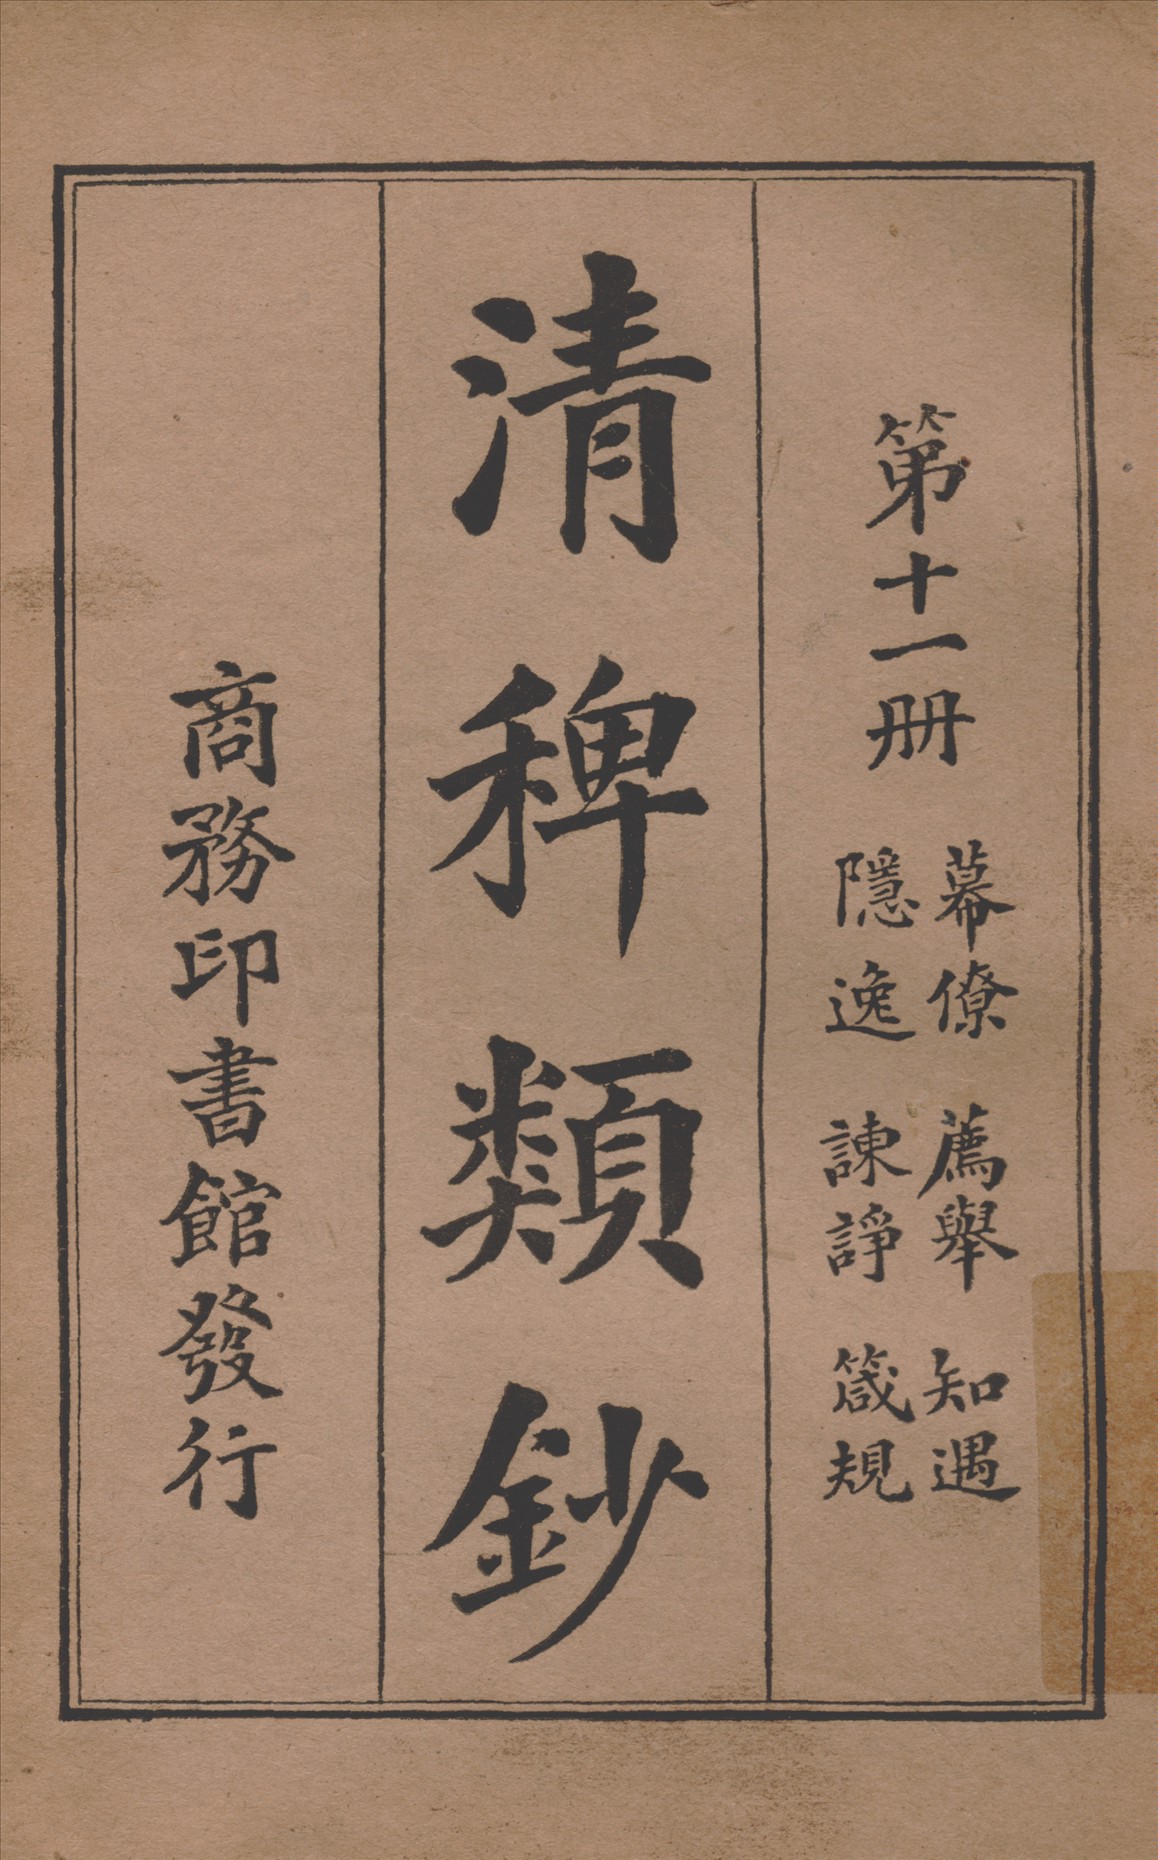 第十一册
幕僚 薦舉 知遇
隱逸 諫諍 箴規
清稗類鈔
商務印書館發行